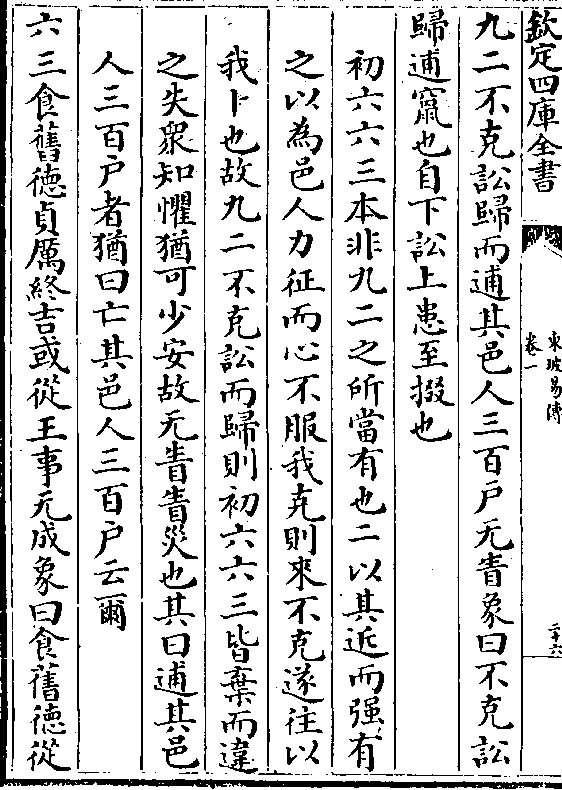 欽定四庫全書
東坡易傳
卷一
二十六
九二不克訟歸而逋其邑人三百户无眚象曰不克訟
歸逋竄也自下訟上患至掇也
初六六三本非九二之所當有也二以其近而强有
之以為邑人力征而心不服我克則來不克遂往以
我卜也故九二不克訟而歸則初六六三皆棄而違
之失衆知懼猶可少安故无眚眚災也其曰逋其邑
人三百户者猶曰亡其邑人三百户云爾
六三食舊徳貞厲終吉或從王事无成象曰食舊徳從